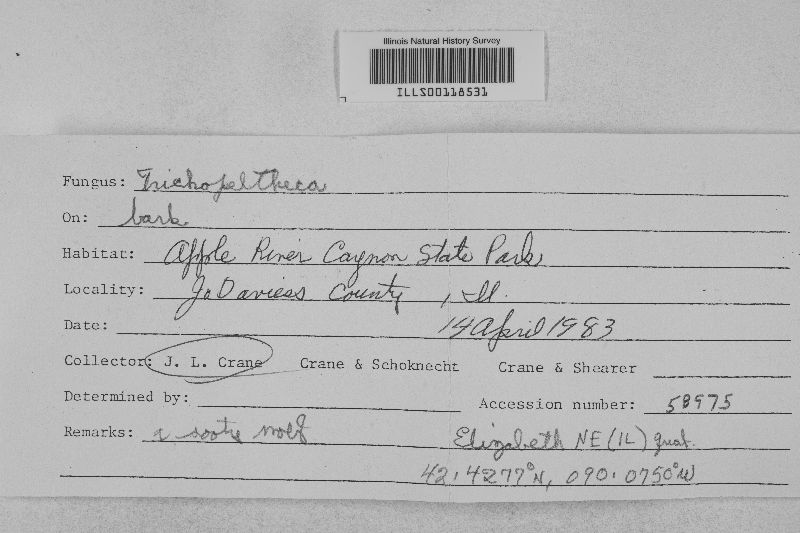 Illinois Natural History Survey
ILLS00118531
Fungus: Trichopeltheca
On: bark
Habitat: Apple River Caynon State Park,
Locality: Jo Daviess County, Ill.
Date: 14 April 1983
Collector: J. L. Crane Crane & Schoknecht Crane & Shearer
Determined by: Accession number: 58975
Remarks: a sooty mold Elizabeth NE (IL) quad.
42.4277°N, 090.0750°W